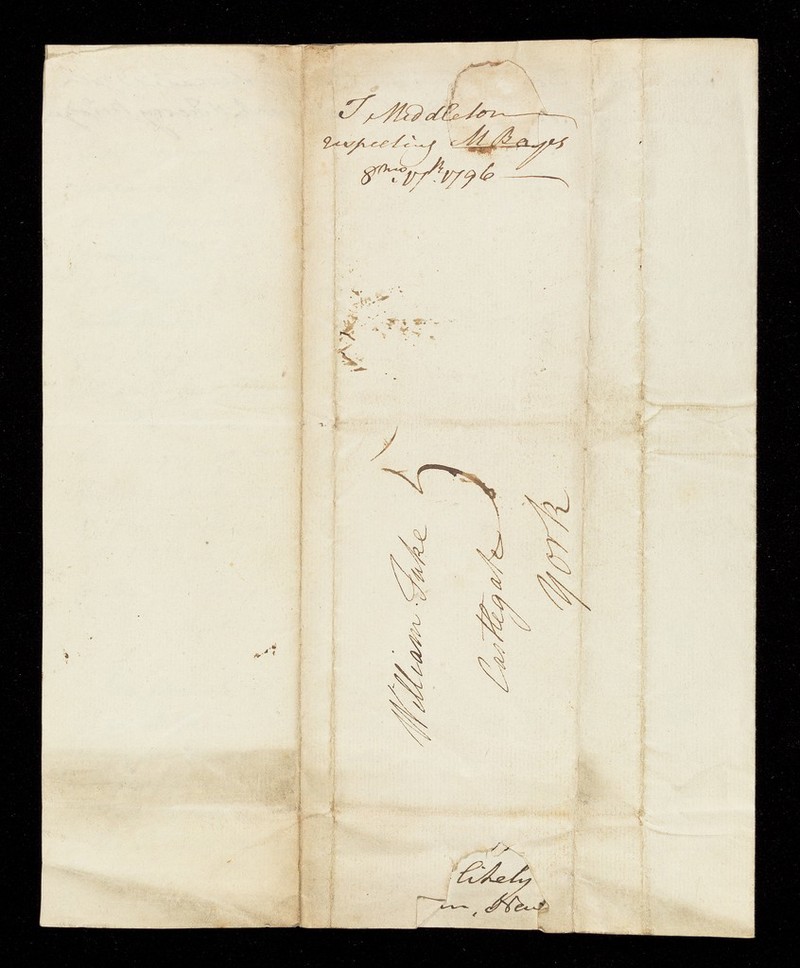 T Middleton
respecting M Bayes
8mo. 17th 1796
William Tuke
Castlegate
York
likely
in, New